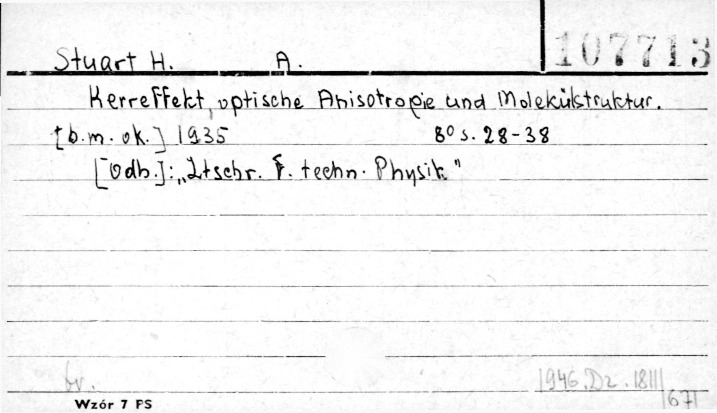 107713
Stuart H. A.
Kerreffekt, optische Anisotropie und Molekülstruktur.
[b.m. ok.] 1935 8° s. 28-38
[Odb.]: „Ztschr. f. techn. Physik."
br. 1946. Dz. 18III
Wzór 7 FS 671